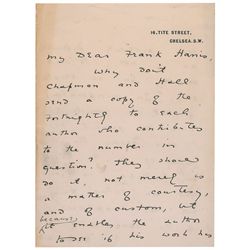 16, TITE STREET,
CHELSEA. S.W.
My Dear Frank Harris,
Why don't
Chapman and Hall
send a copy of the
Fortnightly to each
author who contributes
to the number in
question? They should
do it, not merely as
a matter of courtesy,
and of custom, but
because
it enables the author
to see if his work has